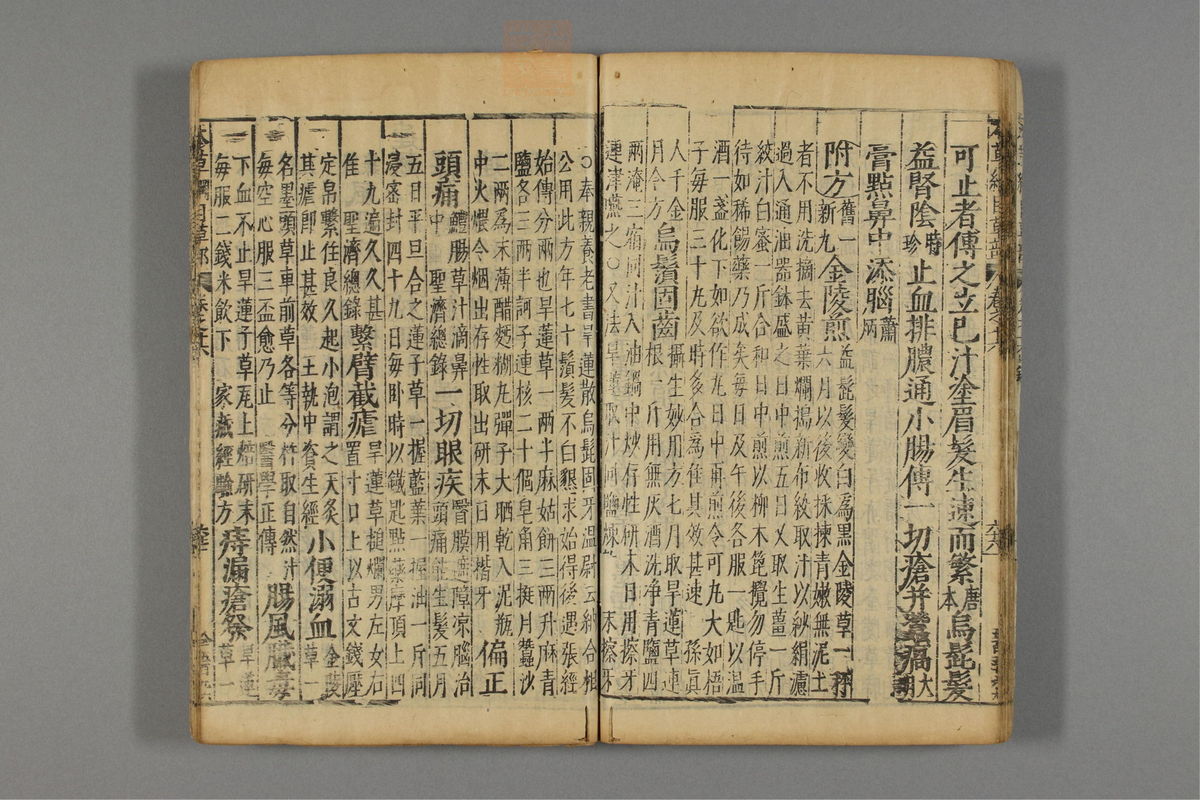 可止者傅之立已汁塗眉髮生速而繁唐本烏髭髮
益腎陰時珍止血排膿通小腸傅一切瘡并蠶㾦大明
膏點鼻中添腦蕭炳
附方舊一新九金陵煎益髭髮變白爲黑金陵草一秤
六月以後收採揀青嫩無泥土
者不用洗摘去黃葉爛搗新布絞取汁以紗絹濾
過入通油器鉢盛之日中煎五日又取生薑一斤
絞汁白蜜一斤合和日中煎以柳木篦攪勿停手
待如稀餳藥乃成矣每旦日及午後各服一匙以溫
酒一盞化下如欲作丸日中再煎令可丸大如梧
子每服三十丸及時多合爲佳其效甚速 孫眞
人千金 烏鬚固齒攝生妙用方七月取旱蓮草連
月令方 根一斤用無灰酒洗淨青鹽四
兩淹三宿同汁入油鍋中炒存性研末日用擦牙
連津嚥之○又法旱蓮取汁同鹽煉 末擦牙
○奉親養老書旱蓮散烏髭固牙溫尉云納合相
公用此方年七十鬚髮不白懇求始得後遇張經
始傳分兩也旱蓮草一兩半麻姑餅三兩升麻青
鹽各三兩半訶子連核二十個皂角三挺月蠶沙
二兩爲末薄醋麪糊丸彈子大晒乾入泥瓶
中火煨令烟出存性取出研末日用揩牙 偏正
頭痛鱧腸草汁滴鼻中 聖濟總錄 一切眼疾翳膜遮障凉腦治
頭痛能生髮五月
五日平旦合之蓮子草一握藍葉一握油一斤同
浸密封四十九日每卧時以鐵匙點藥摩頂上四
十九遍久久甚佳 聖濟總錄 繫臂截瘧旱蓮草槌爛男左女右
置寸口上以古文錢壓
定帛繫住良久起小泡謂之天灸
其瘧卽止甚效 王執中資生經 小便溺血金陵草一
名墨頭草車前草各等分杵取自然汁
每空心服三盃愈乃止 醫學正傳 腸風臟毒
下血不止旱蓮子草瓦上焙研末
每服二錢米飲下 家藏經驗方 痔漏瘡發旱蓮草一
本草綱目草部